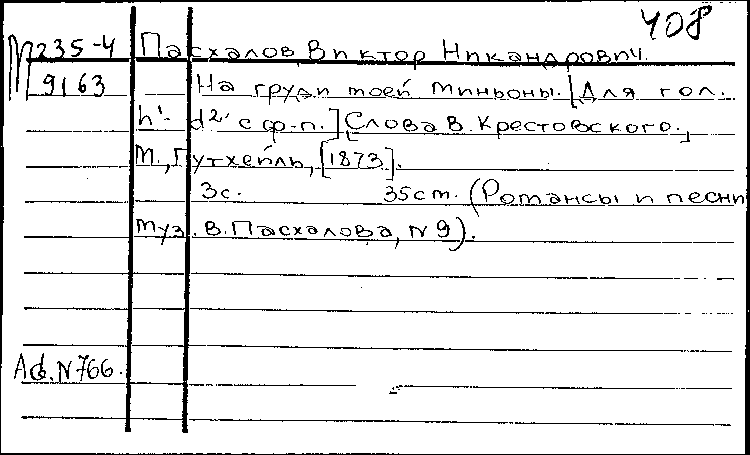 408
М 235-4 Пасхалов, Виктор Никандрович.
9163 На груди моей Миньоны. [Для гол.
h¹- d²' с ф-п.] [Слова В. Крестовского.]
М., Гутхейль, [1873].
3с. 35cm. (Романсы и песни
муз. В. Пасхалова, N 9).
Ad. N 766.